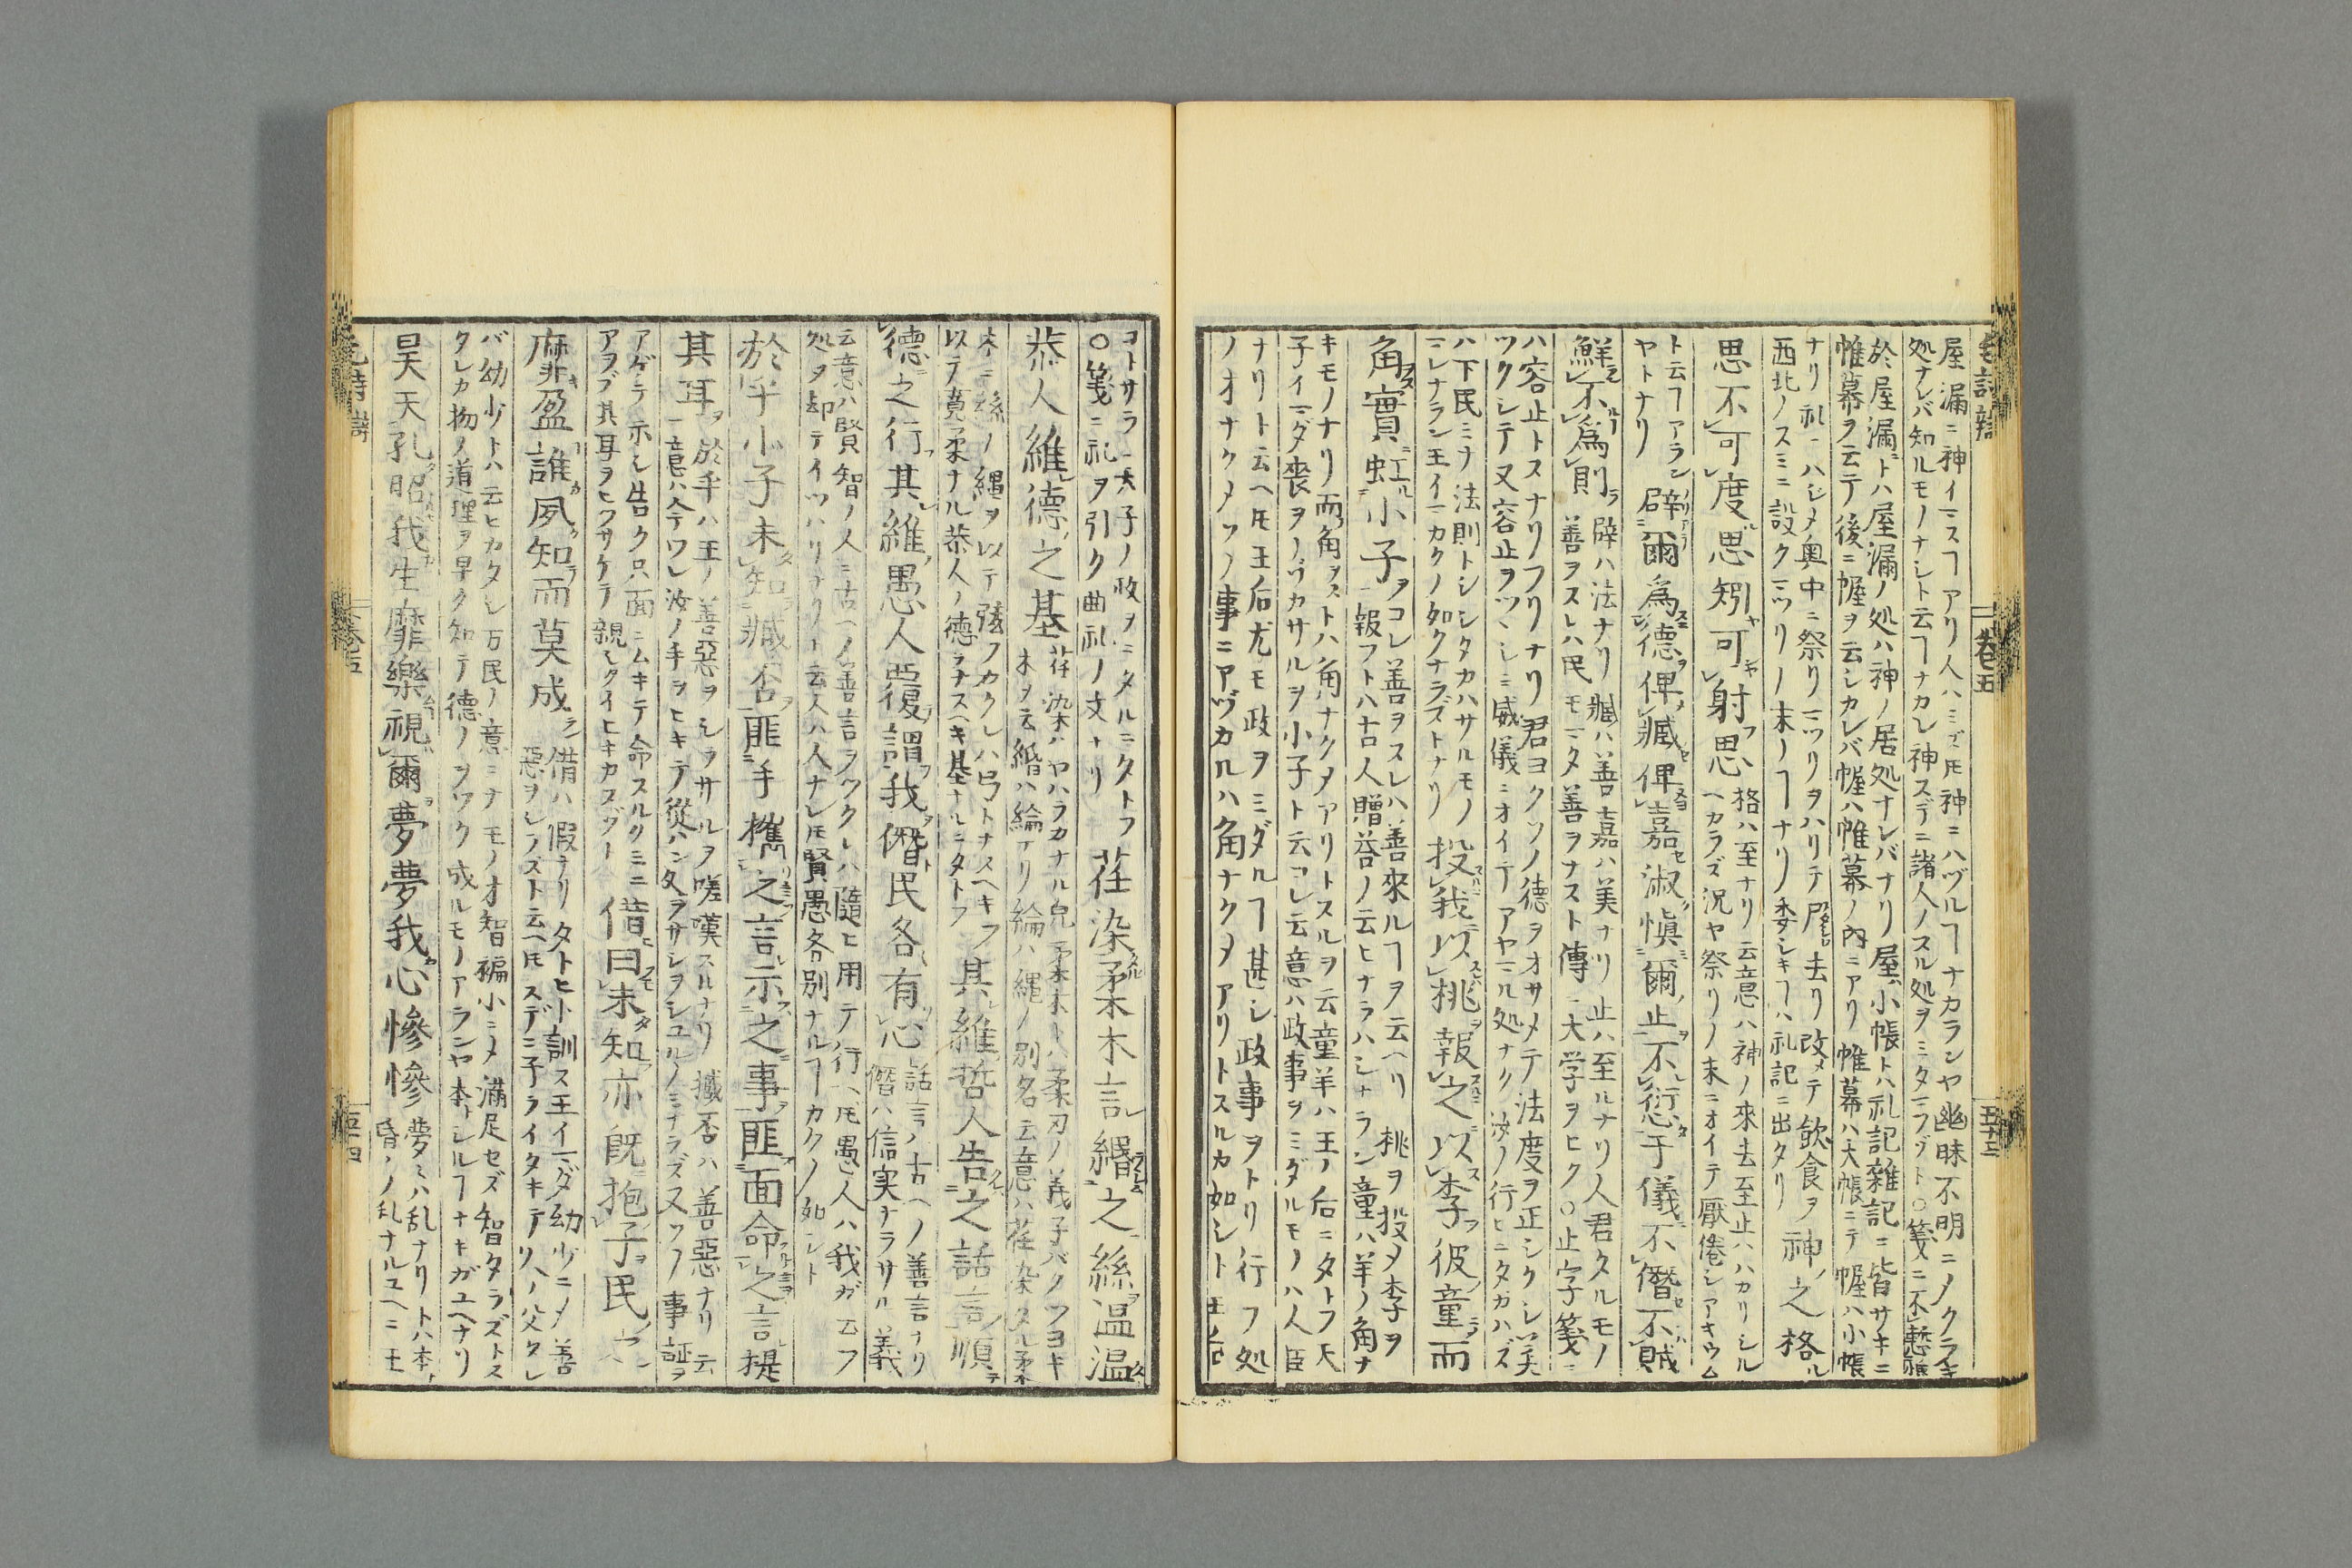 毛詩辯 卷五
屋漏ニ神イマスヿアリ人ハミズ𪜈神ニハヅルヿナカランヤ幽昧不明ニメクラキ
処ナレバ知ルモノナシト云ヿナカレ神スデニ諸人ノスル処ヲミタマフゾト○箋ニ不慙
於屋漏トハ屋漏ノ処ハ神ノ居処ナレバナリ屋小帳トハ礼記雜記ニ皆サキニ
帷幕ヲ云テ後ニ幄ヲ云シカレバ幄ハ帷幕ノ内ニアリ帷幕ハ大帳ニテ幄ハ小帳
ナリ礼ニハジメ奥中ニ祭リマツリヲハリテ尸去リ改メテ飲食ヲ
西北ノスミニ設クマツリノ末ノヿナリ委シキヿハ礼記ニ出タリ
神之格
思不可度思矧可射思
格ハ至ナリ云意ハ神ノ來去至止ハハカリシル
ヘカラズ況ヤ祭リノ末ニオイテ厭倦シアキウム
ト云ヿアラン
ヤトナリ
辟爾爲德俾臧俾嘉淑愼爾止不愆于儀不僭不賊
鮮不爲則
辟ハ法ナリ臧ハ善嘉ハ美ナリ止ハ至ルナリ人君タルモノ
善ヲスレハ民モマタ善ヲナスト傳ニ大学ヲヒク○止字箋ニ
ハ容止トスナリフリナリ君ヨクソノ德ヲオサメテ法度ヲ正シクシ美
ツクシテ又容止ヲツヽシミ威儀ニオイテアヤマル処ナク汝ノ行ヒニタカハズ
ハ下民ミナ法則トシシタカハサルモノ
ニレナラン王イマカクノ如クナラズトナリ
投我以桃報之以李彼童而
角實虹小子
コレ善ヲスレハ善來ルヿヲ云ヘリ桃ヲ投メ李ヲ
報フトハ古人贈荅ノ云ヒナラハシナラン童ハ羊ノ角ナ
キモノナリ而角ヲストハ角ナクメアリトスルヲ云童羊ハ王ノ后ニタトフ天
子イマダ喪ヲノゾカサルヲ小子ト云コレ云意ハ政事ヲミダルモノハ人臣
ナリト云ヘ𪜈王后尤モ政ヲミダルヿ甚シ政事ヲトリ行フ処
ノオナクメソノ事ニアヅカルハ角ナクメアリトスルカ如シト王后
コトサラニ天子ノ政ヲミタルニタトフ
○箋ニ礼ヲ引ク曲礼ノ文ナリ
荏染柔木言緡之絲温温
恭人維德之基
荏染ハヤハラカナル皃柔木トハ柔刃ノ義子バクツヨキ
木ヲ云緡ハ綸ナリ綸ハ縄ノ別名云意ハ荏染タル柔
木ニ絲ノ縄ヲ以テ弦ヲカクレハ弓トナスヘキフ
以テ寛柔ナル恭人ノ德ヲナスヘキ基ナルニタトフ
其維哲人告之話言順
德之行其維愚人覆謂我僭民各有心
話言ハ古ヘノ善言ナリ
僭ハ信実ナラサル義
云意ハ賢智ノ人ニ古ヘノ善言ヲツクレハ隨ヒ用テ行ヘ𪜈愚人ハ我ガ云フ
処ヲ却テイツハリナリト云人ハ人ナレ𪜈賢愚各別ナルヿカクノ如シト
於乎小子未知臧否匪手攜之言示之事匪面命之言提
其耳
於乎ハ王ノ善惡ヲシラサルヲ嗟嘆スルナリ臧否ハ善惡ナリ云
意ハ今ワレ汝ノ手ヲヒキテ從ハン処ヲサシヲシユルノミナラズ又ソノ事証ヲ
アゲテ示シ告ク只面ニムキテ命スルクミニ
アラズ其耳ヲヒツサケテ親シクイヒキカスゾト
借曰未知亦既抱子民之
靡盈誰夙知而莫成
借ハ假ナリタトヒト訓ス王イマダ幼少ニメ善
惡ヲシラズト云ヘ𪜈スデニ子ライタキテリ人ノ父タレ
バ幼少トハ云ヒカタシ万民ノ意ミナモノオ智褊小ニメ滿足セズ智タラズトス
タレカ物ノ道理ヲ早ク知テ德ノヲソク成ルモノアランヤ本トシルヿナキガユヘナリ
昊天孔昭我生靡樂視爾夢夢我心慘慘
夢ミハ乱ナリトハ本
昏ノ乱ナルユヘニ王
毛詩辯 卷五 五十四